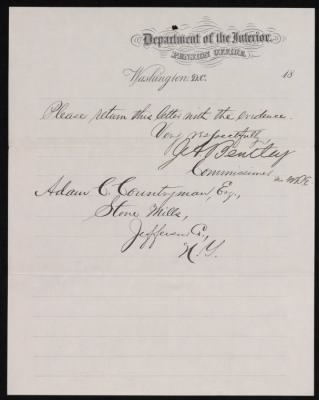 Department of the Interior,
PENSION OFFICE,
Washington D.C. 18
Please return this letter with the evidence.
Very respectfully,
J A Bentley
Commissioner
Adam C. Countryman, Esq.,
Stone Mills,
Jefferson Co.,
N.Y.